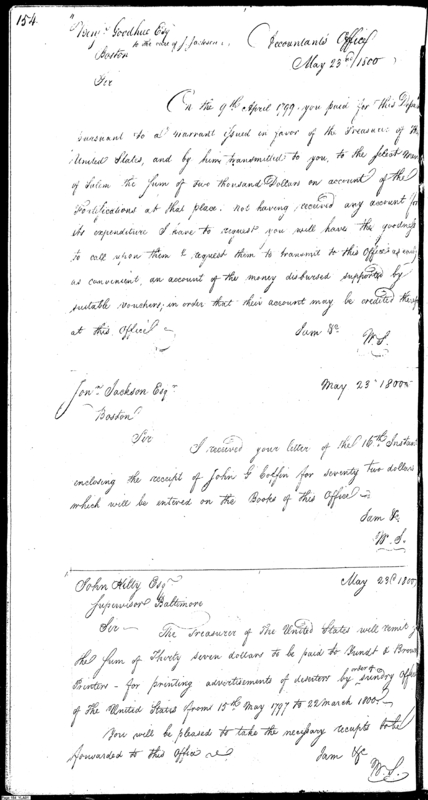 154.
Benjn Goodhue Esqr
to the care of J. Jackson
Accountants Office
Boston
May 23d 1800
Sir
On the 9th April 1799 you paid for this Depar
pursuant to a warrant issued in favor of the Treasurer of the
United States, and by him transmitted to you, to the Select Men
of Salem the Sum of two thousand Dollars on account of the
Fortifications at that place. not having received any account for
its expenditure I have to request you will have the goodness
to call upon them & request them to transmit to this Office as early
as convenient, an account of the money disbursed supported by
suitable vouchers, in order that their account may be credited
at this Office
I am &c
W. S.
Jonn Jackson Esqr
May 23d 1800
Boston
Sir
I received your letter of the 16th Instant
enclosing the receipt of John G Coffin for seventy two dollars
which will be entered on the Books of this Office
I am &c
W. S.
John Kilty Esqr
May 23d 1800
Supervisor Baltimore
Sir
The Treasurer of the United States will remit y
the Sum of Thirty seven dollars to be paid to Yundt & Brown
Printers - for printing advertisements of deserters by order of sundry Officers
of the United States from 15th May 1797 to 22 March 1800
You will be pleased to take the necessary receipts to be
forwarded to this Office
I am &c
W. S.